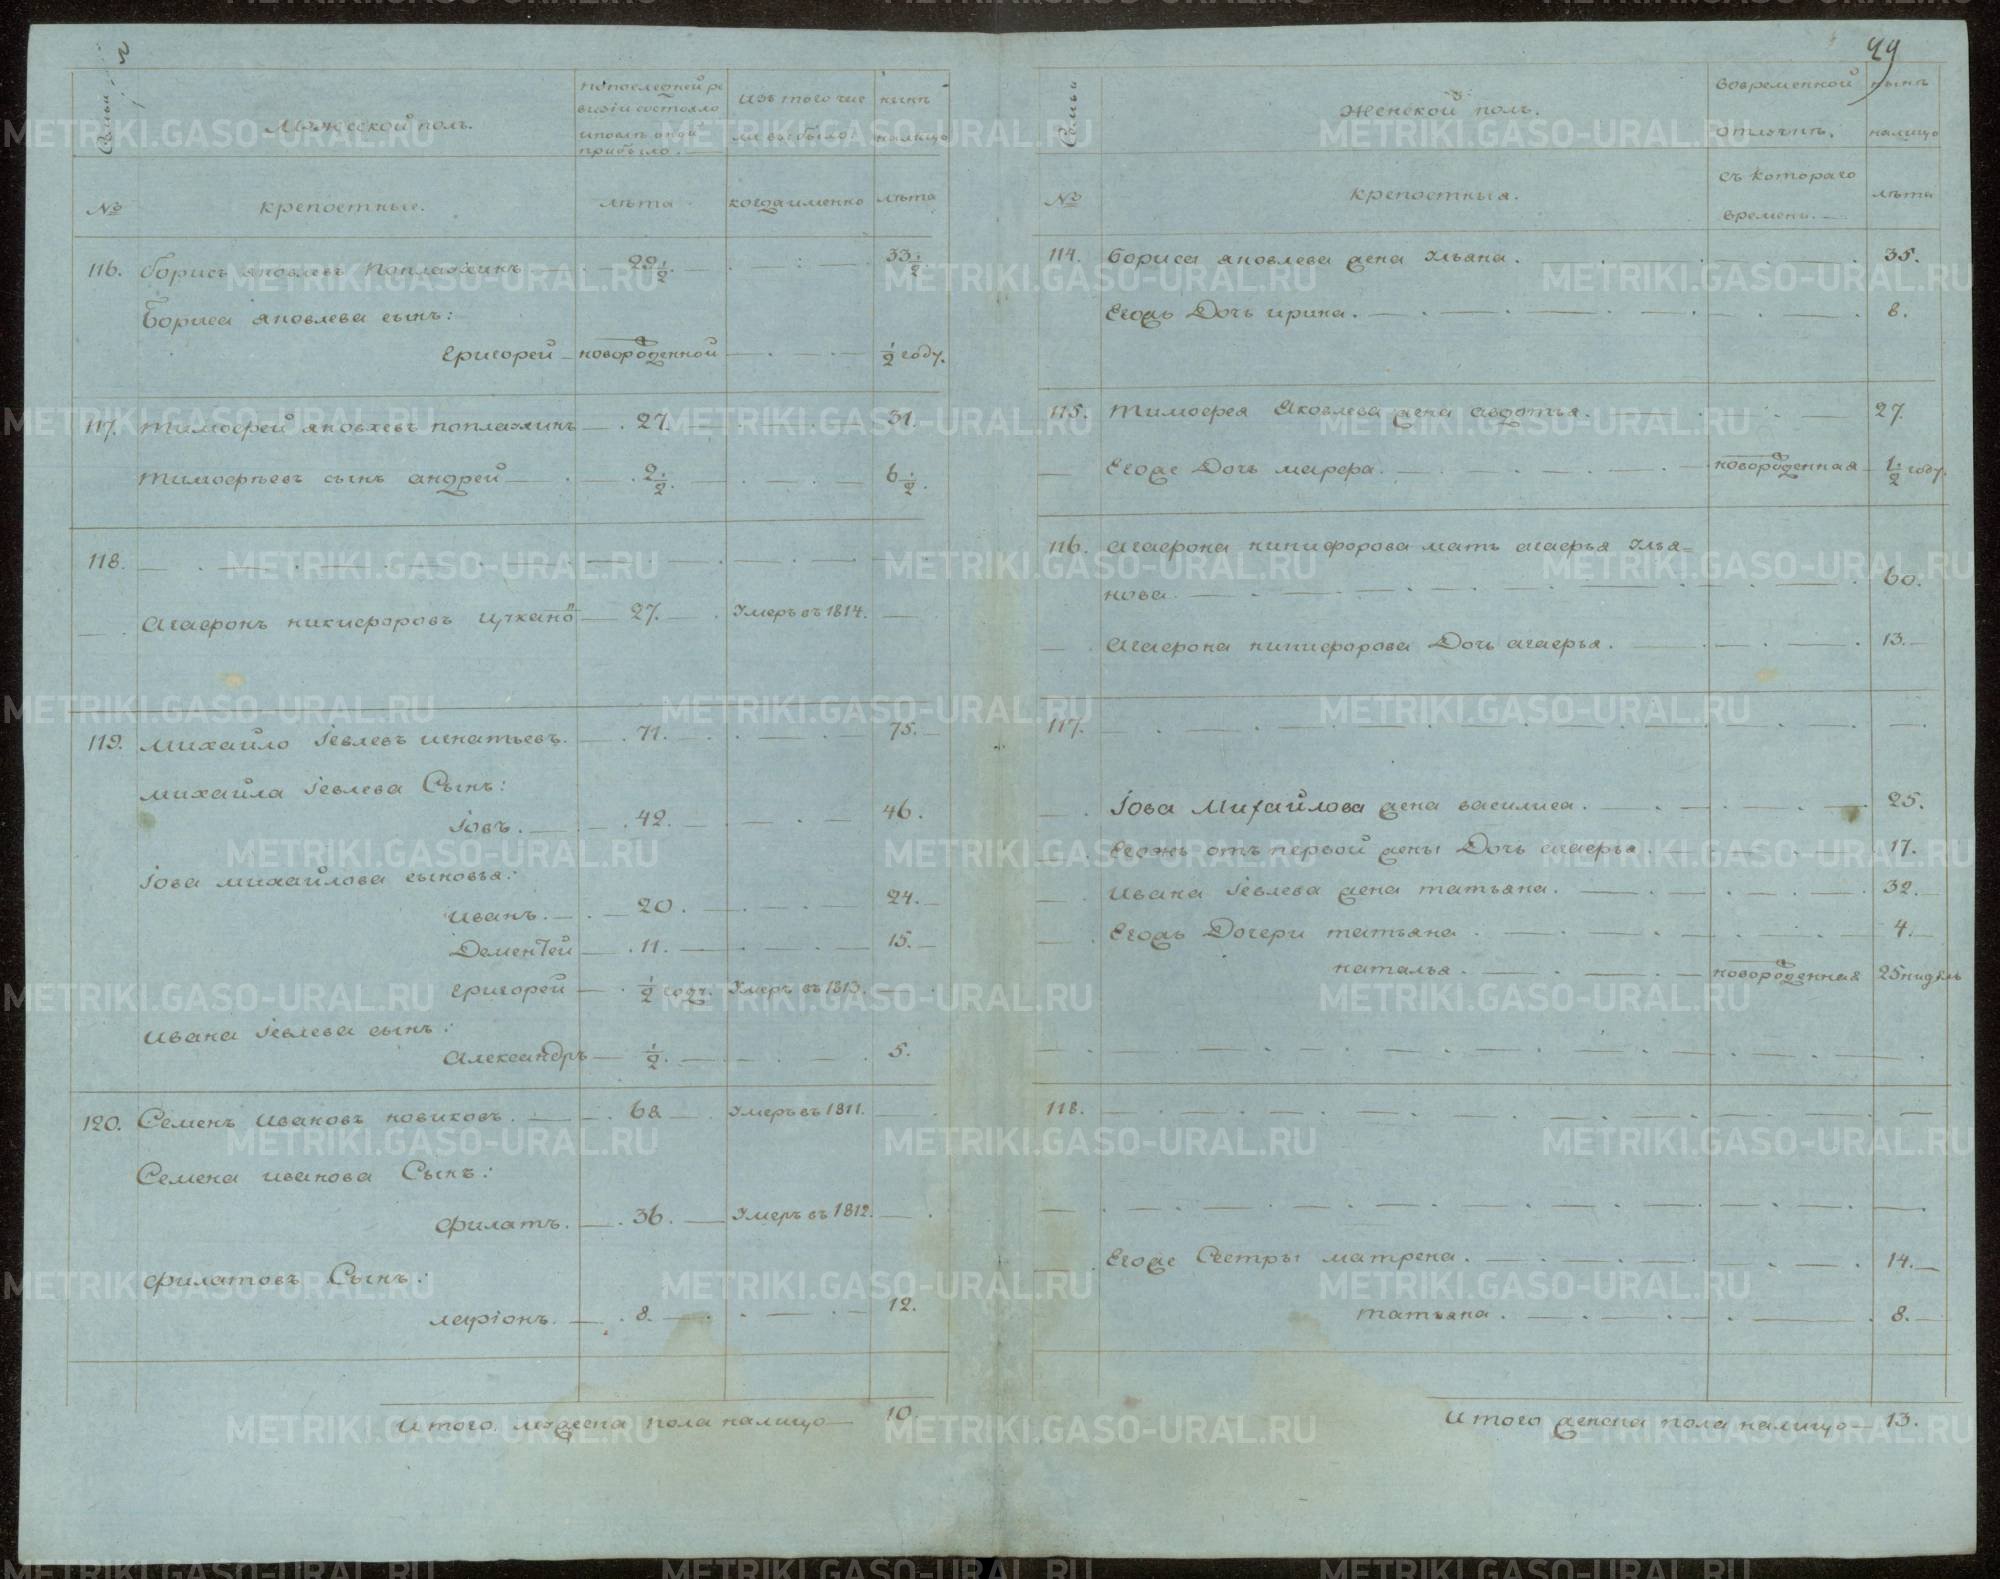 49
Семьи
Мужеской полъ.
Попоследней ре
визiи состояло
ипослѣ оной
прибыло.
Изъ того чис
ла выбыло:
нынѣ
налицо
№
крепостные.
лѣта
когда именно
лѣта
116. Борисъ яковлевъ Поплаухинъ 29 1/2. 33 1/2.
Бориса яковлева сынъ:
григорей новорожденной 1/2 году.
117. тимофей яковлевъ поплаухинъ 27. 31.
тимофѣевъ сынъ андрей 2 1/2. 6 1/2.
118.
агафонъ никифоровъ 27. Умеръ въ 1814.
119. михайло Iевлевъ игнатьевъ. 71. 75.
михайла Iевлева Сынъ:
Iовъ. 42. 46.
Iова михайлова сыновья:
иванъ. 20. 24.
Дементей 11. 15.
григорей 1/2 году. Умеръ въ 1813.
ивана Iевлева сынъ:
Александръ 1/2. 5.
120. Семенъ ивановъ новиковъ. 68 Умеръ въ 1811.
Семена иванова Сынъ:
филатъ. 36. Умеръ въ 1812.
филатовъ Сынъ:
ларiонъ. 8. 12.
Итого мужеска пола налицо 10.
Семьи
Женской полъ.
Вовременной
отлучкѣ.
нынѣ
налицо
№
крепостныя.
съ котораго
времени.
лѣта
114. Бориса яковлева жена Ульяна. 35.
Егожъ Дочь ирина. 8.
115. тимофея Яковлева жена авдотья. 27.
Егоже Дочь марфа. новорожденная 1/2 году.
116. агафона никифорова мать агафья Улья=
нова. 60.
агафона никифорова Дочь агафья. 13.
117.
Iова Михайлова жена василиса. 25.
Егожъ отъ первой жены Дочь агафья. 17.
ивана Iевлева жена татьяна. 32.
Егожъ Дочери татьяна 4.
наталья. новорожденная 25 нидѣль
118.
Егоже Сестры матрена. 14.
татьяна. 8.
Итого женска пола налицо 13.